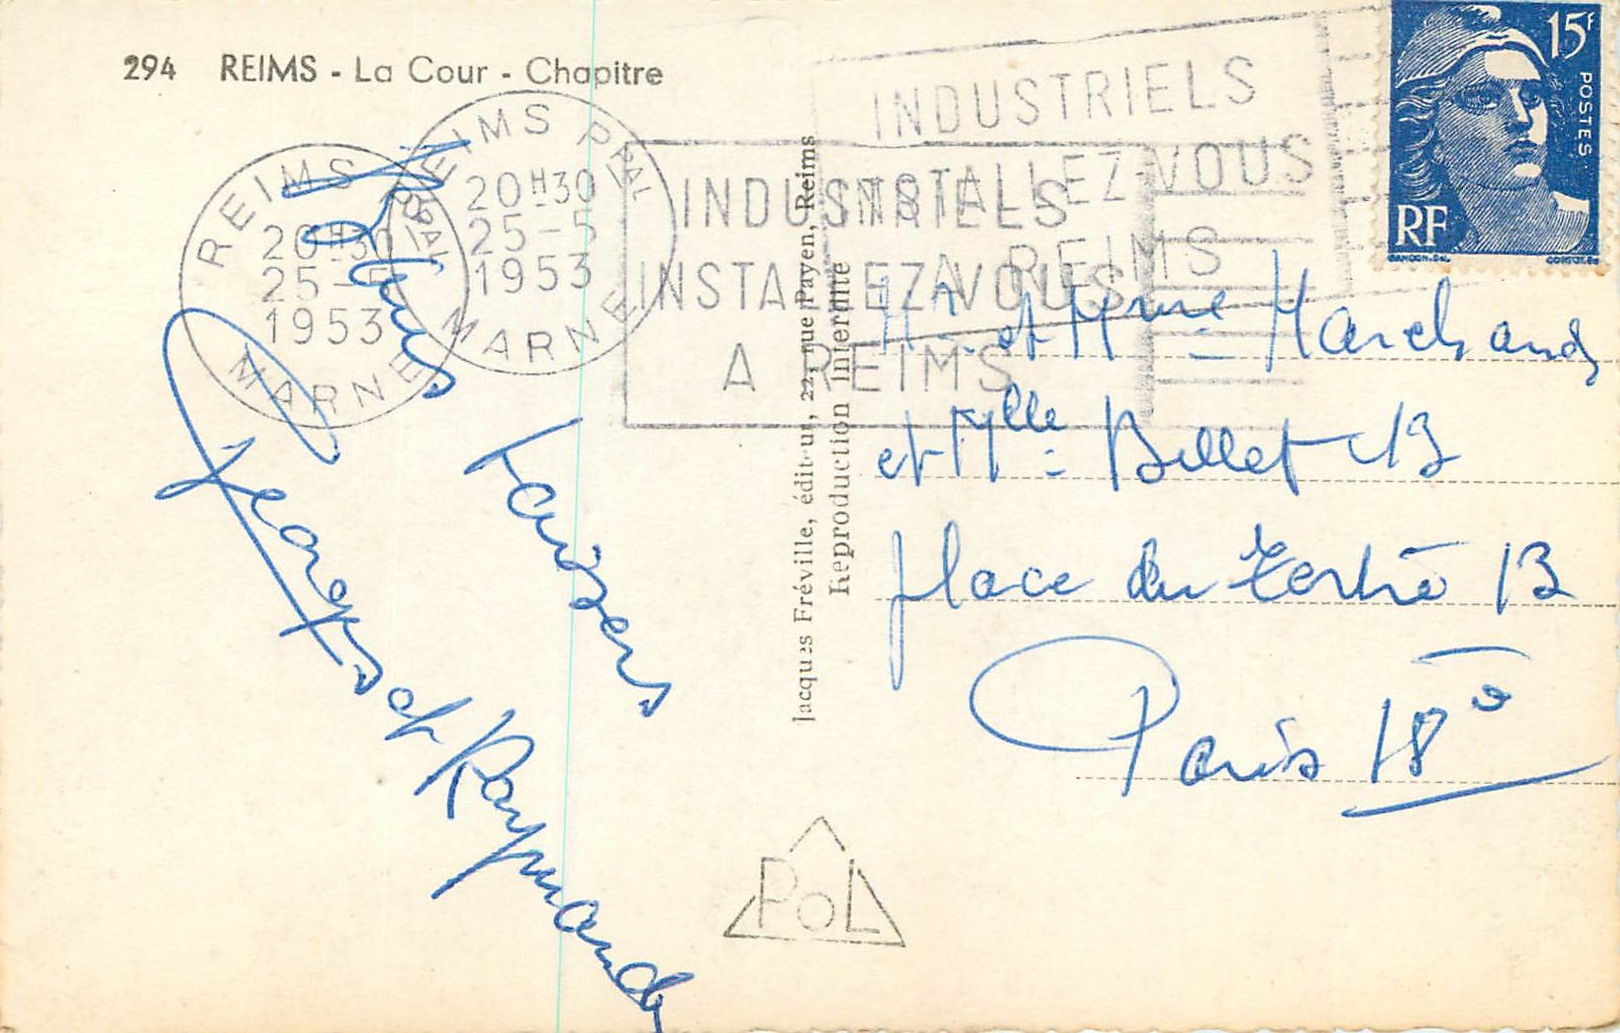 294 REIMS - La Cour - Chapitre
REIMS PPAL
20H30
25-5
1953
MARNE
REIMS PPAL
20H30
25-5
1953
MARNE
INDUSTRIELS
INSTALLEZ-VOUS
A REIMS
INDUSTRIELS
INSTALLEZ-VOUS
A REIMS
15F
POSTES
RF
GANDON.
Jacques Fréville, éditeur, 22, rue Payen, Reims
Reproduction Interdite
Baisers
Georges et Raymonde
Mr et Mme Marchand
et Mlle Billet
place du Tertre 13
Paris 18e
PoL